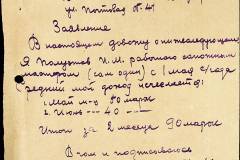 ул. Почтовая № 41
Заявление
В настоящем довожу о нижеследующем
Я Калутов И.М. работаю сапожным
мастером (сам один) с 1 мая с/года
средний мой доход исчисляется:
1. Май м-ц 50 марок
2. Июнь — 40 — "—
Итого за 2 месеца 90 марок
В чем и подписываюсь